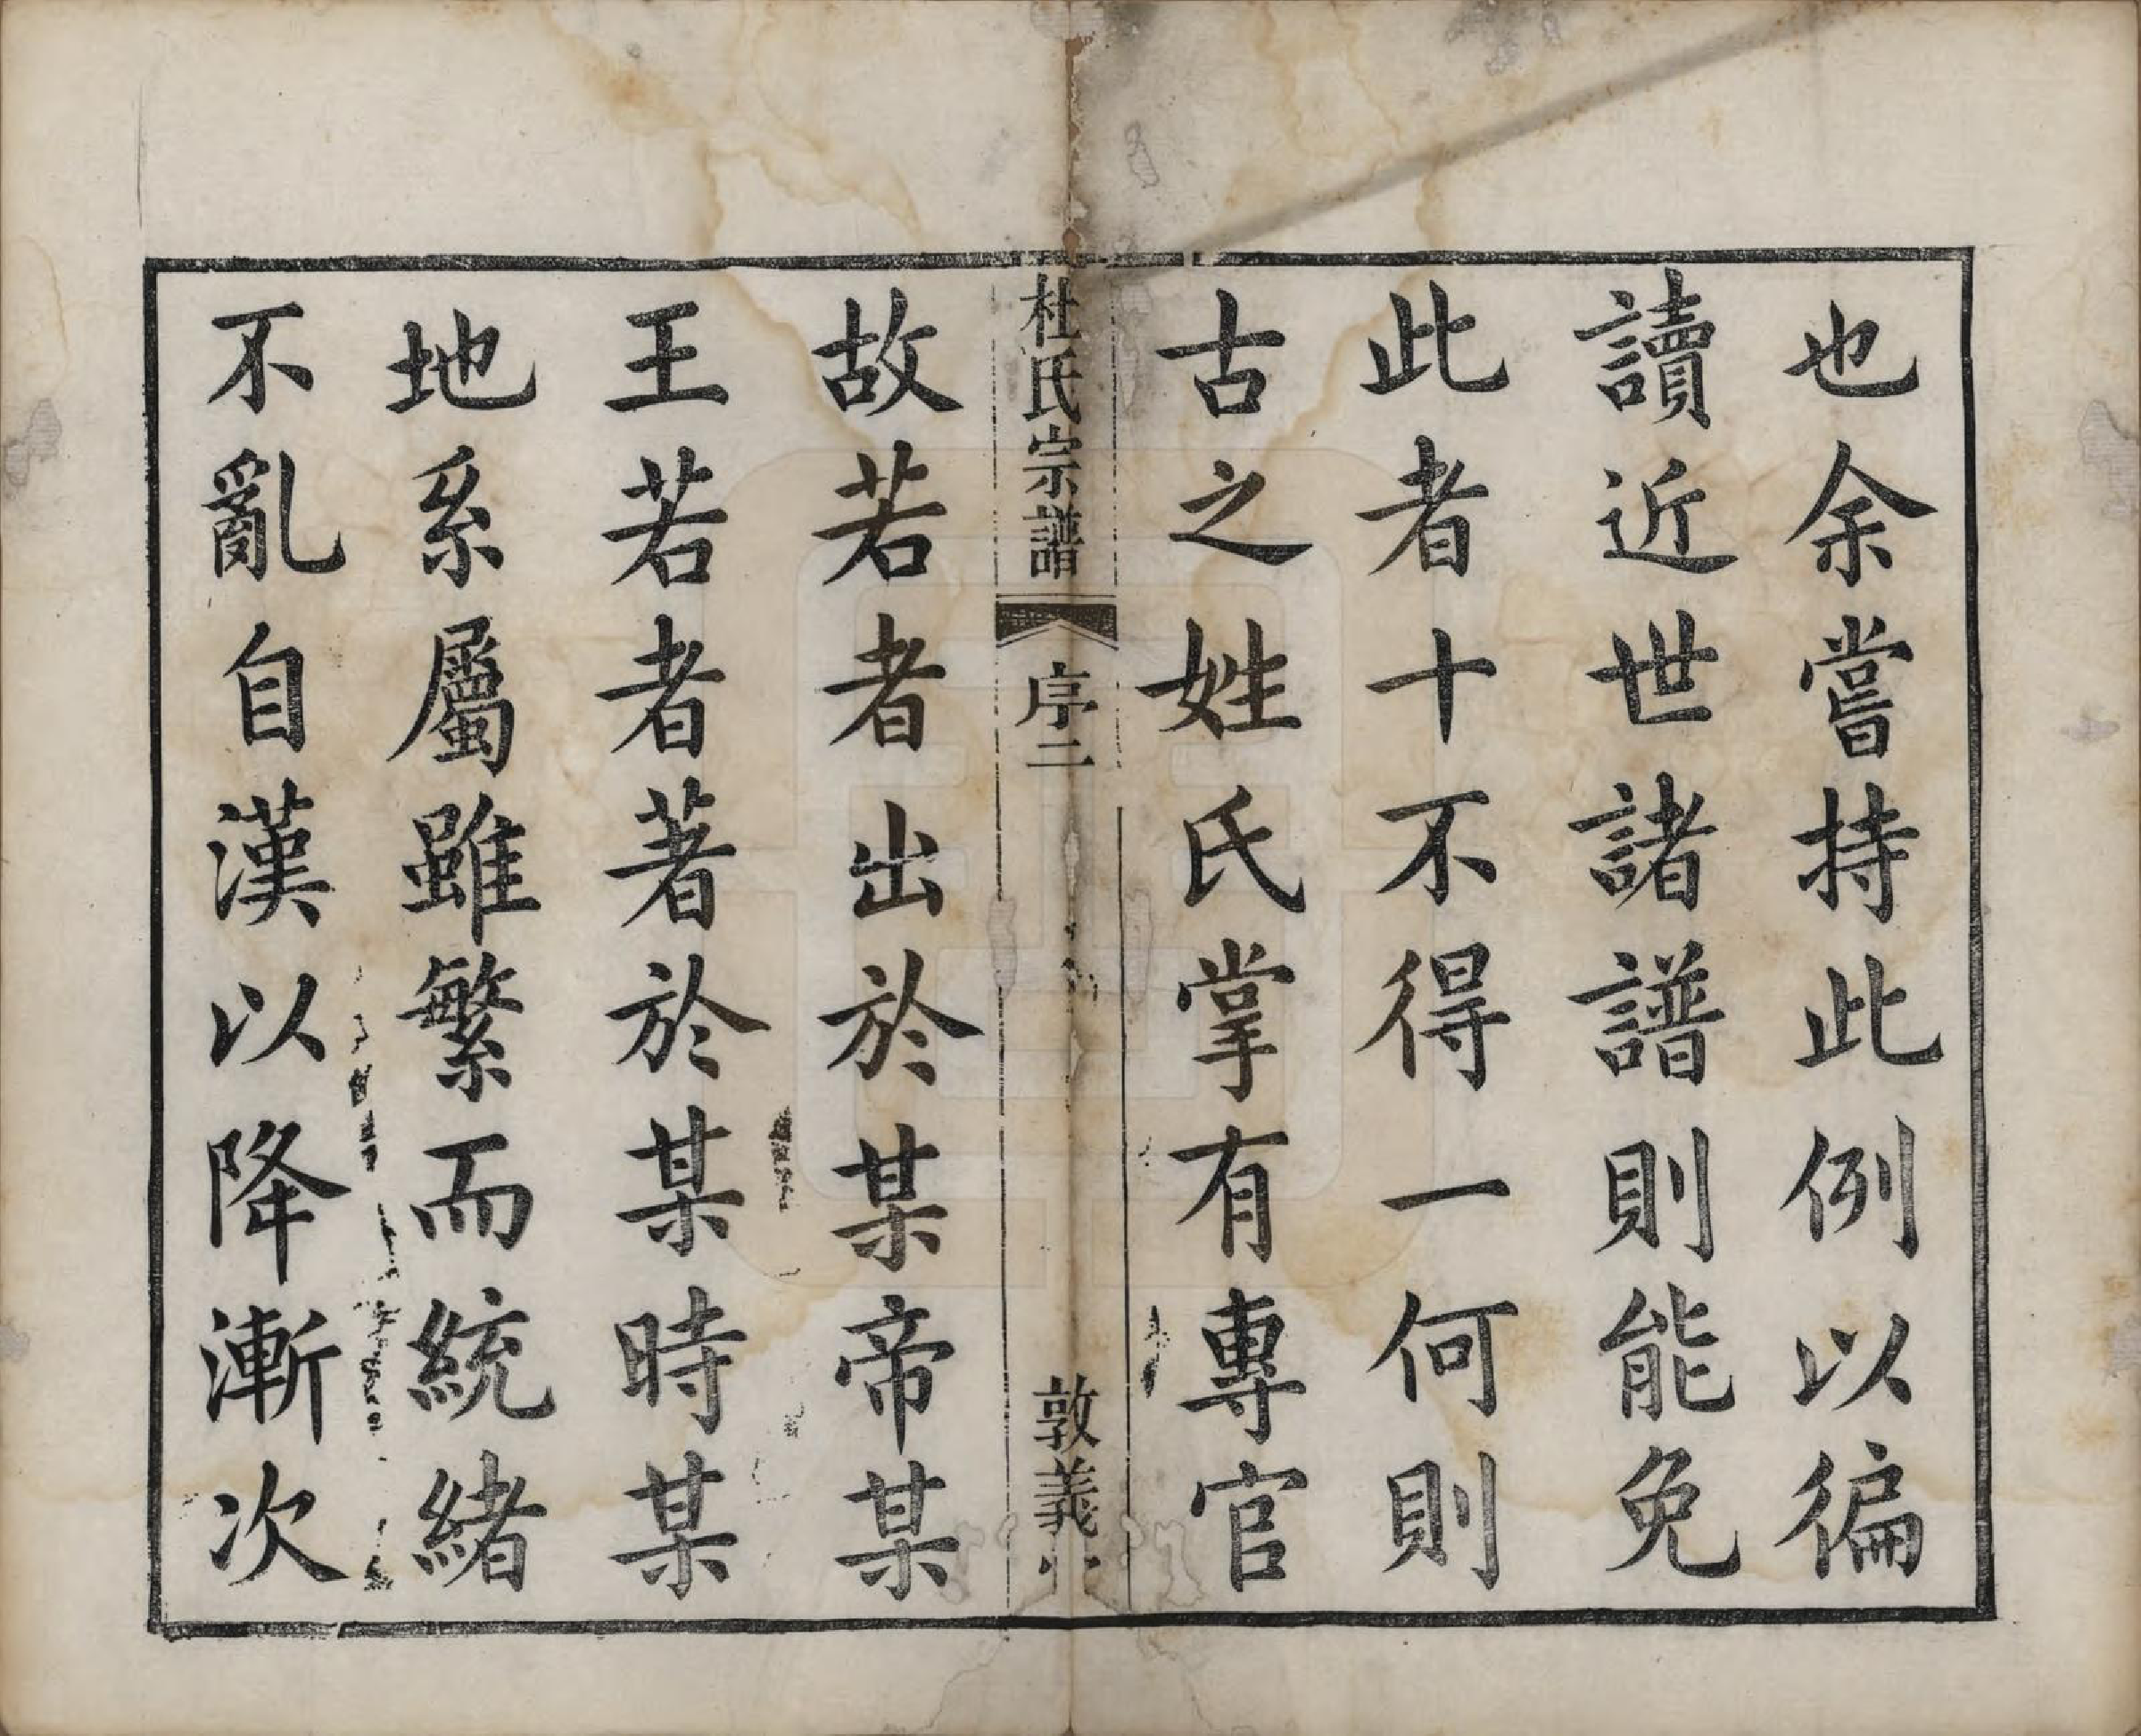 也余嘗持此例以徧
讀近世諸譜則能免
此者十不得一何則
古之姓氏掌有專官
杜氏宗譜
序二
敦義
故若者出於某帝某
王若者著於某時某
地系屬雖繁而統緒
不亂自漢以降漸次